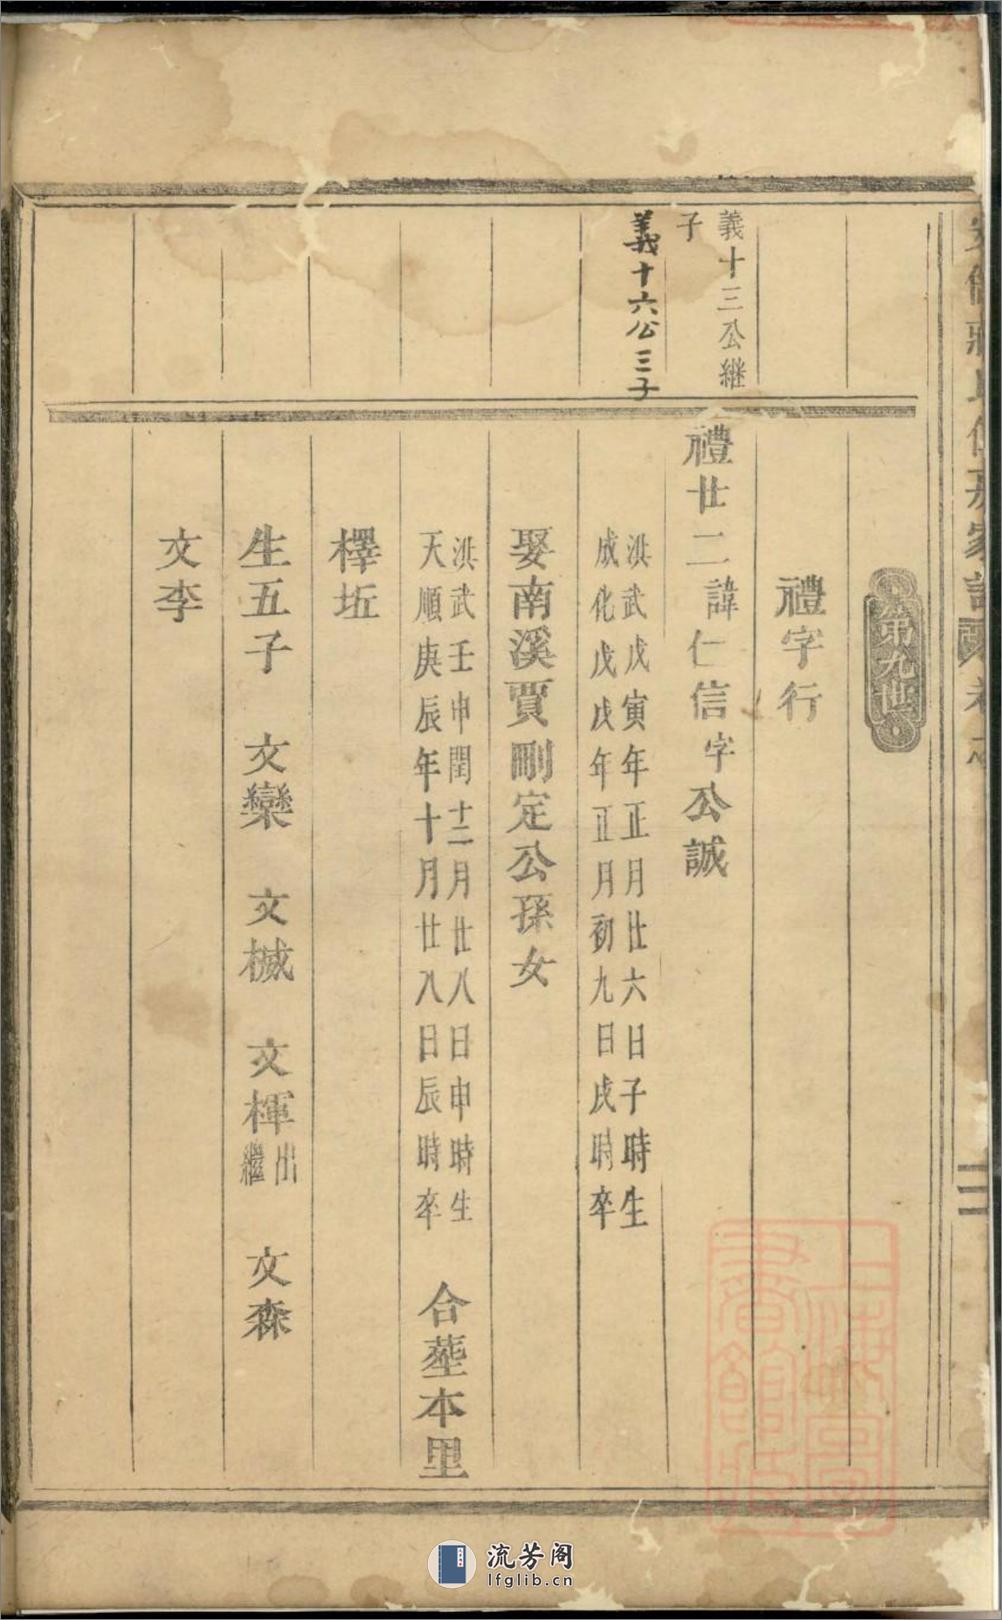 第九世
禮字行
義十三公繼
子
義十六公三子
禮廿二諱仁信字公誠
洪武戊寅年正月廿六日子時生
成化戊戌年正月初九日戌時卒
娶南溪賈剛定公孫女
洪武壬申閏十二月廿八日申時生
天順庚辰年十月廿八日辰時卒
合塟本里
檡坵
生五子 文欒 文楲 文楎出繼 文森
文李
上海圖書館藏
流芳阁
lfglib.cn